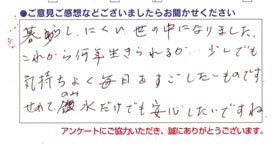 ●ご意見ご感想などございましたらお聞かせください
暮しにくい世の中になりました。
これから何年生きられるか…少しでも
気持ちよく毎日すごしたいものです
せめて飲み水だけでも安心したいですね
アンケートにご協力いただき、誠にありがとうございます。